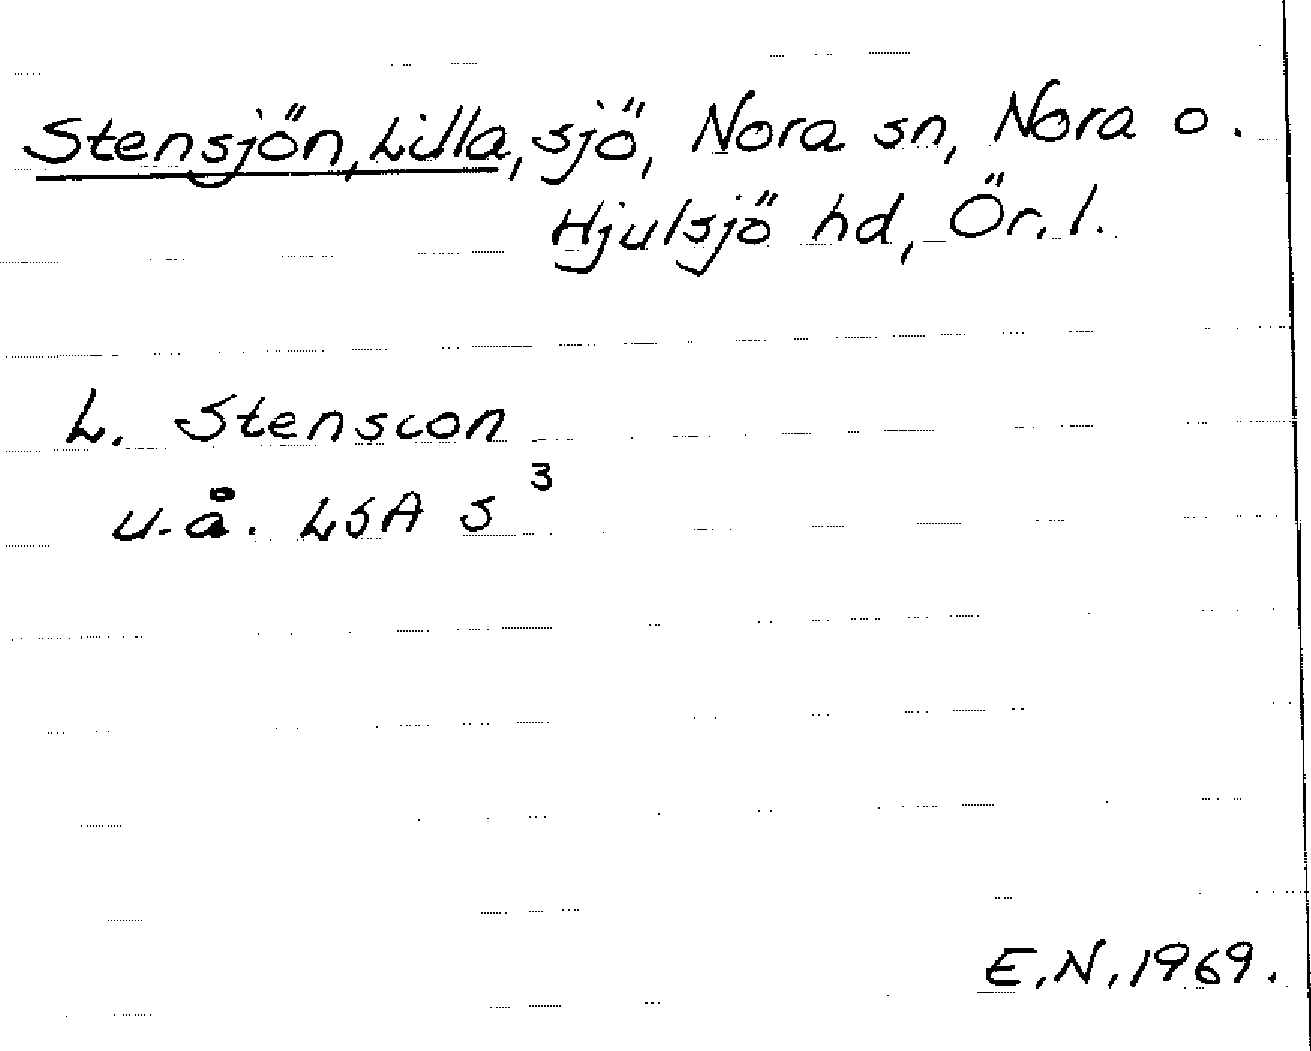 Stensjön, Lilla, sjö, Nora sn, Nora o.
Hjulsjö hd, Ör. l.
L. Stenscon
u.å. LSA S 3
E.N. 1969.